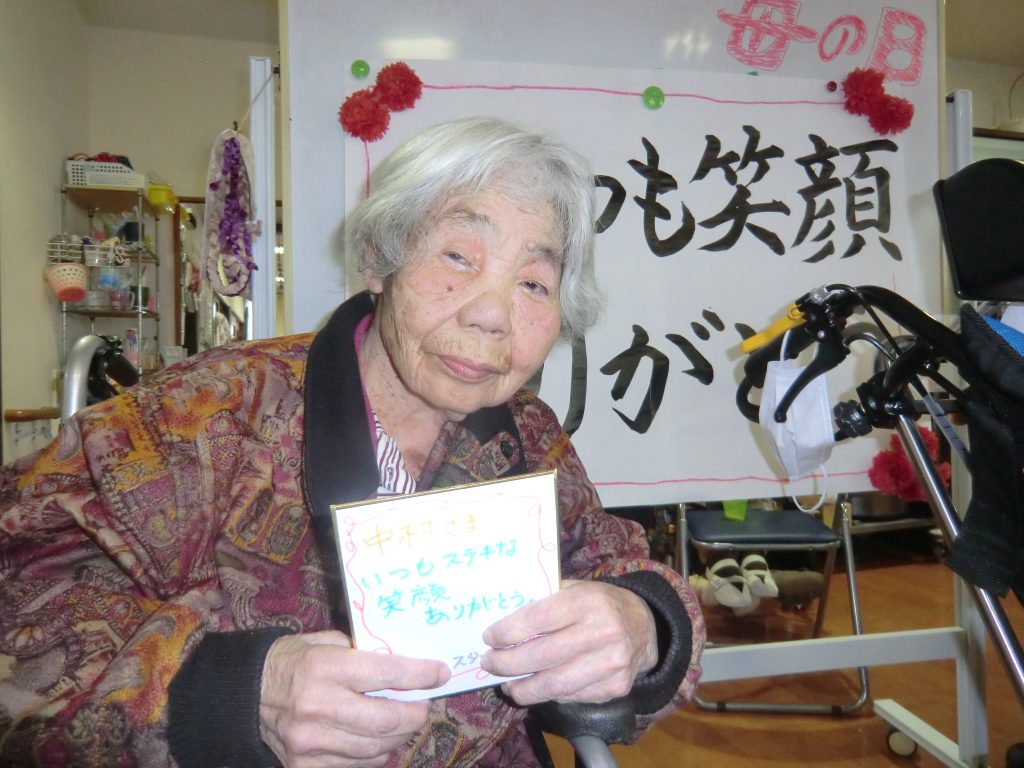 母の日
つも笑顔
りがと
中村さま
いつもステキな
笑顔
ありがとう。
スタ